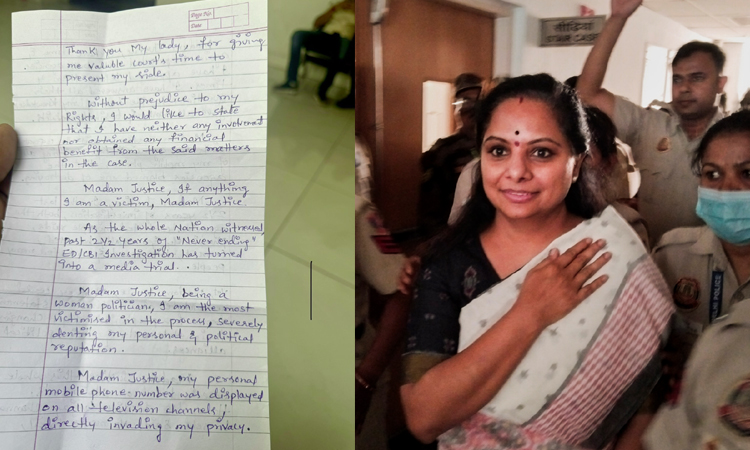 Page No.
Date
Thank you My lady, for giving
me valuble court's time to
present my side.
Without prejudice to my
Rights, I would like to state
that I have neither any involvement
nor obtained any financial
benefit from the said matters
in the case.
Madam Justice, If anything
I am a victim, Madam Justice
As the whole Nation witnessed
past 2½ years of "Never ending"
ED/CBI Investigation has turned
into a media trial..
Madam Justice, being a
woman politicians, I am the most
victimised in the process, severely
denting my personal & political
reputation.
Madam Justice, my personal
mobile phone number was displayed
on all television channels,
directly invading my privacy.
STAIR CASE
POLICE